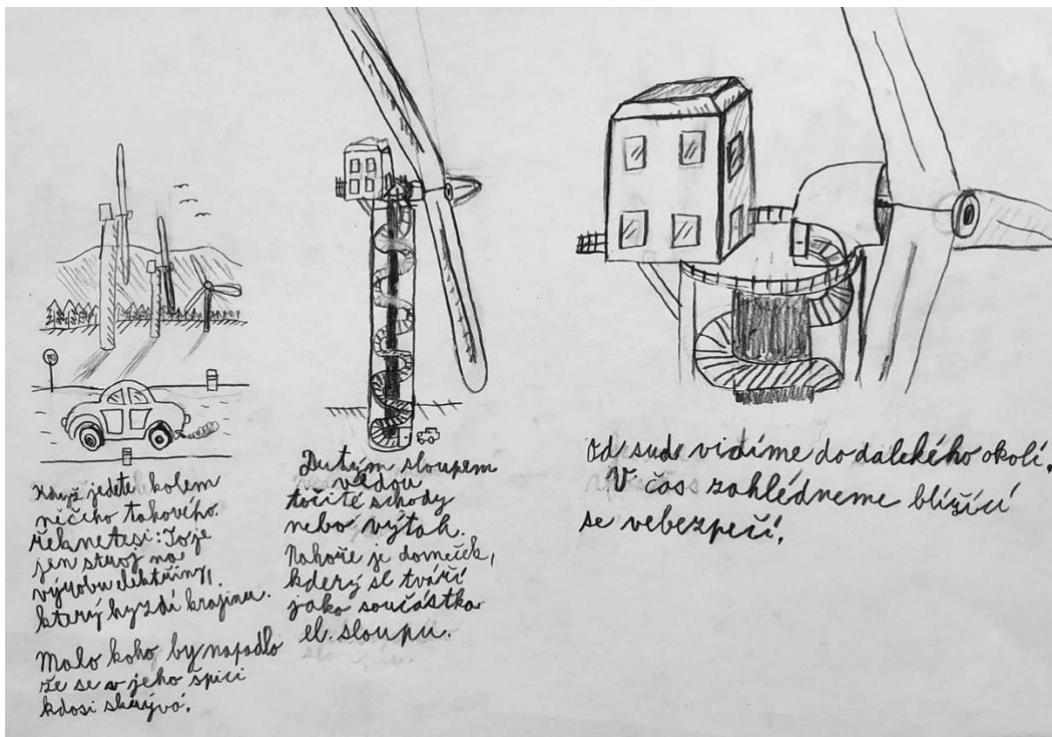 Když jedete kolem
něčeho takového.
řeknete si: To je
jen stroj na
výrobu elektřiny,
který hyzdí krajinu.
Málo koho by napadlo
že se v jeho špici
kdosi skrývá.
Dutým sloupem
vedou
točité schody
nebo výtah.
Nahoře je domeček,
kderý se tváří
jako součástka
el. sloupu.
Od sud vidíme do dalekého okolí.
V čas zahlédneme blížící
se nebezpečí.